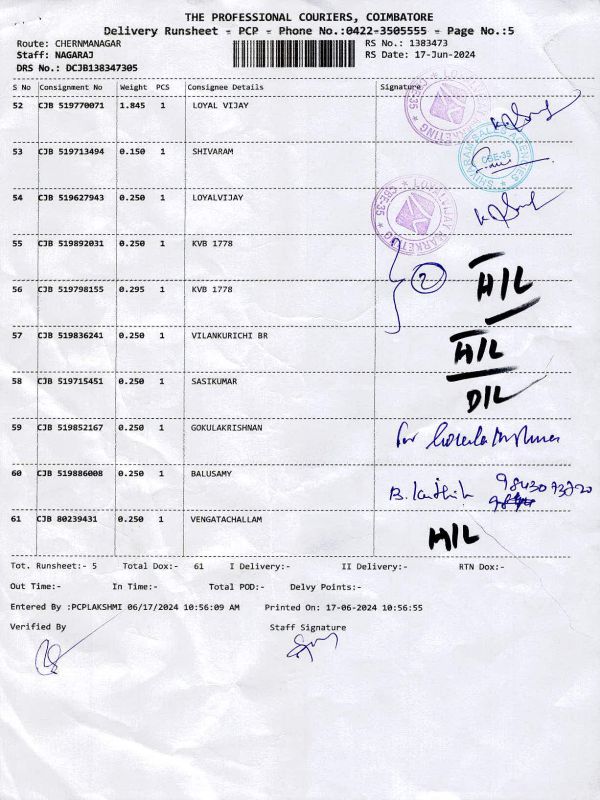 THE PROFESSIONAL COURIERS, COIMBATORE
Delivery Runsheet - PCP - Phone No.:0422-3505555 - Page No.:5
Route: CHERNMANAGAR RS No.: 1383473
Staff: NAGARAJ RS Date: 17-Jun-2024
DRS No.: DCJB138347305
S No Consignment No Weight PCS Consignee Details Signature
52 CJB 519770071 1.845 1 LOYAL VIJAY
53 CJB 519713494 0.150 1 SHIVARAM
SHIVARAM SALES AGENCIES CBE-35
54 CJB 519627943 0.250 1 LOYALVIJAY
MARKETING CBE-35
55 CJB 519892031 0.250 1 KVB 1778
2
56 CJB 519798155 0.295 1 KVB 1778 H/L
57 CJB 519836241 0.250 1 VILANKURICHI BR H/L
58 CJB 519715451 0.250 1 SASIKUMAR D/L
59 CJB 519852167 0.250 1 GOKULAKRISHNAN for
60 CJB 519886008 0.250 1 BALUSAMY B.
61 CJB 80239431 0.250 1 VENGATACHALLAM H/L
Tot. Runsheet:- 5 Total Dox:- 61 I Delivery:- II Delivery:- RTN Dox:-
Out Time:- In Time:- Total POD:- Delvy Points:-
Entered By :PCPLAKSHMI 06/17/2024 10:56:09 AM Printed On: 17-06-2024 10:56:55
Verified By Staff Signature